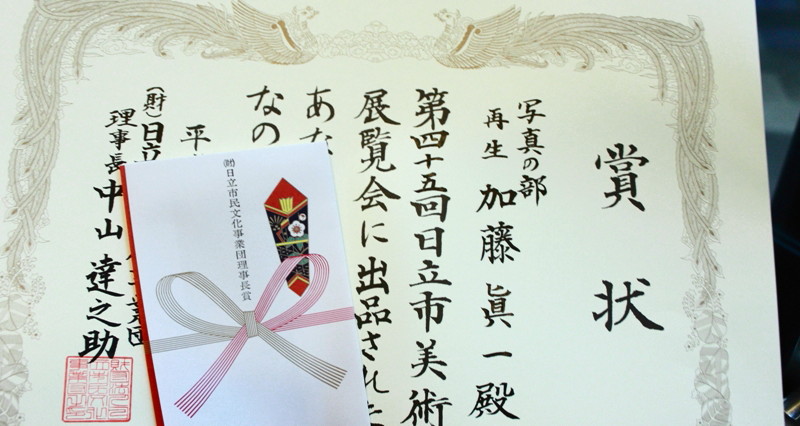 賞状
写真の部
再生 加藤眞一殿
第四十五回日立市美術
展覧会に出品された
あな
なの
平
(財)日立
理事長 中山達之助
(財)日立市民文化事業団理事長賞